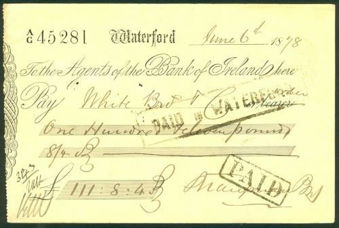 A/C 45281 Waterford June 6th 1878
To the Agents of the Bank of Ireland here
Pay White Bros & Co or Bearer
order
PAID IN WATERFORD
One Hundred & Eleven pounds
8/4
£111:8:4
PAID